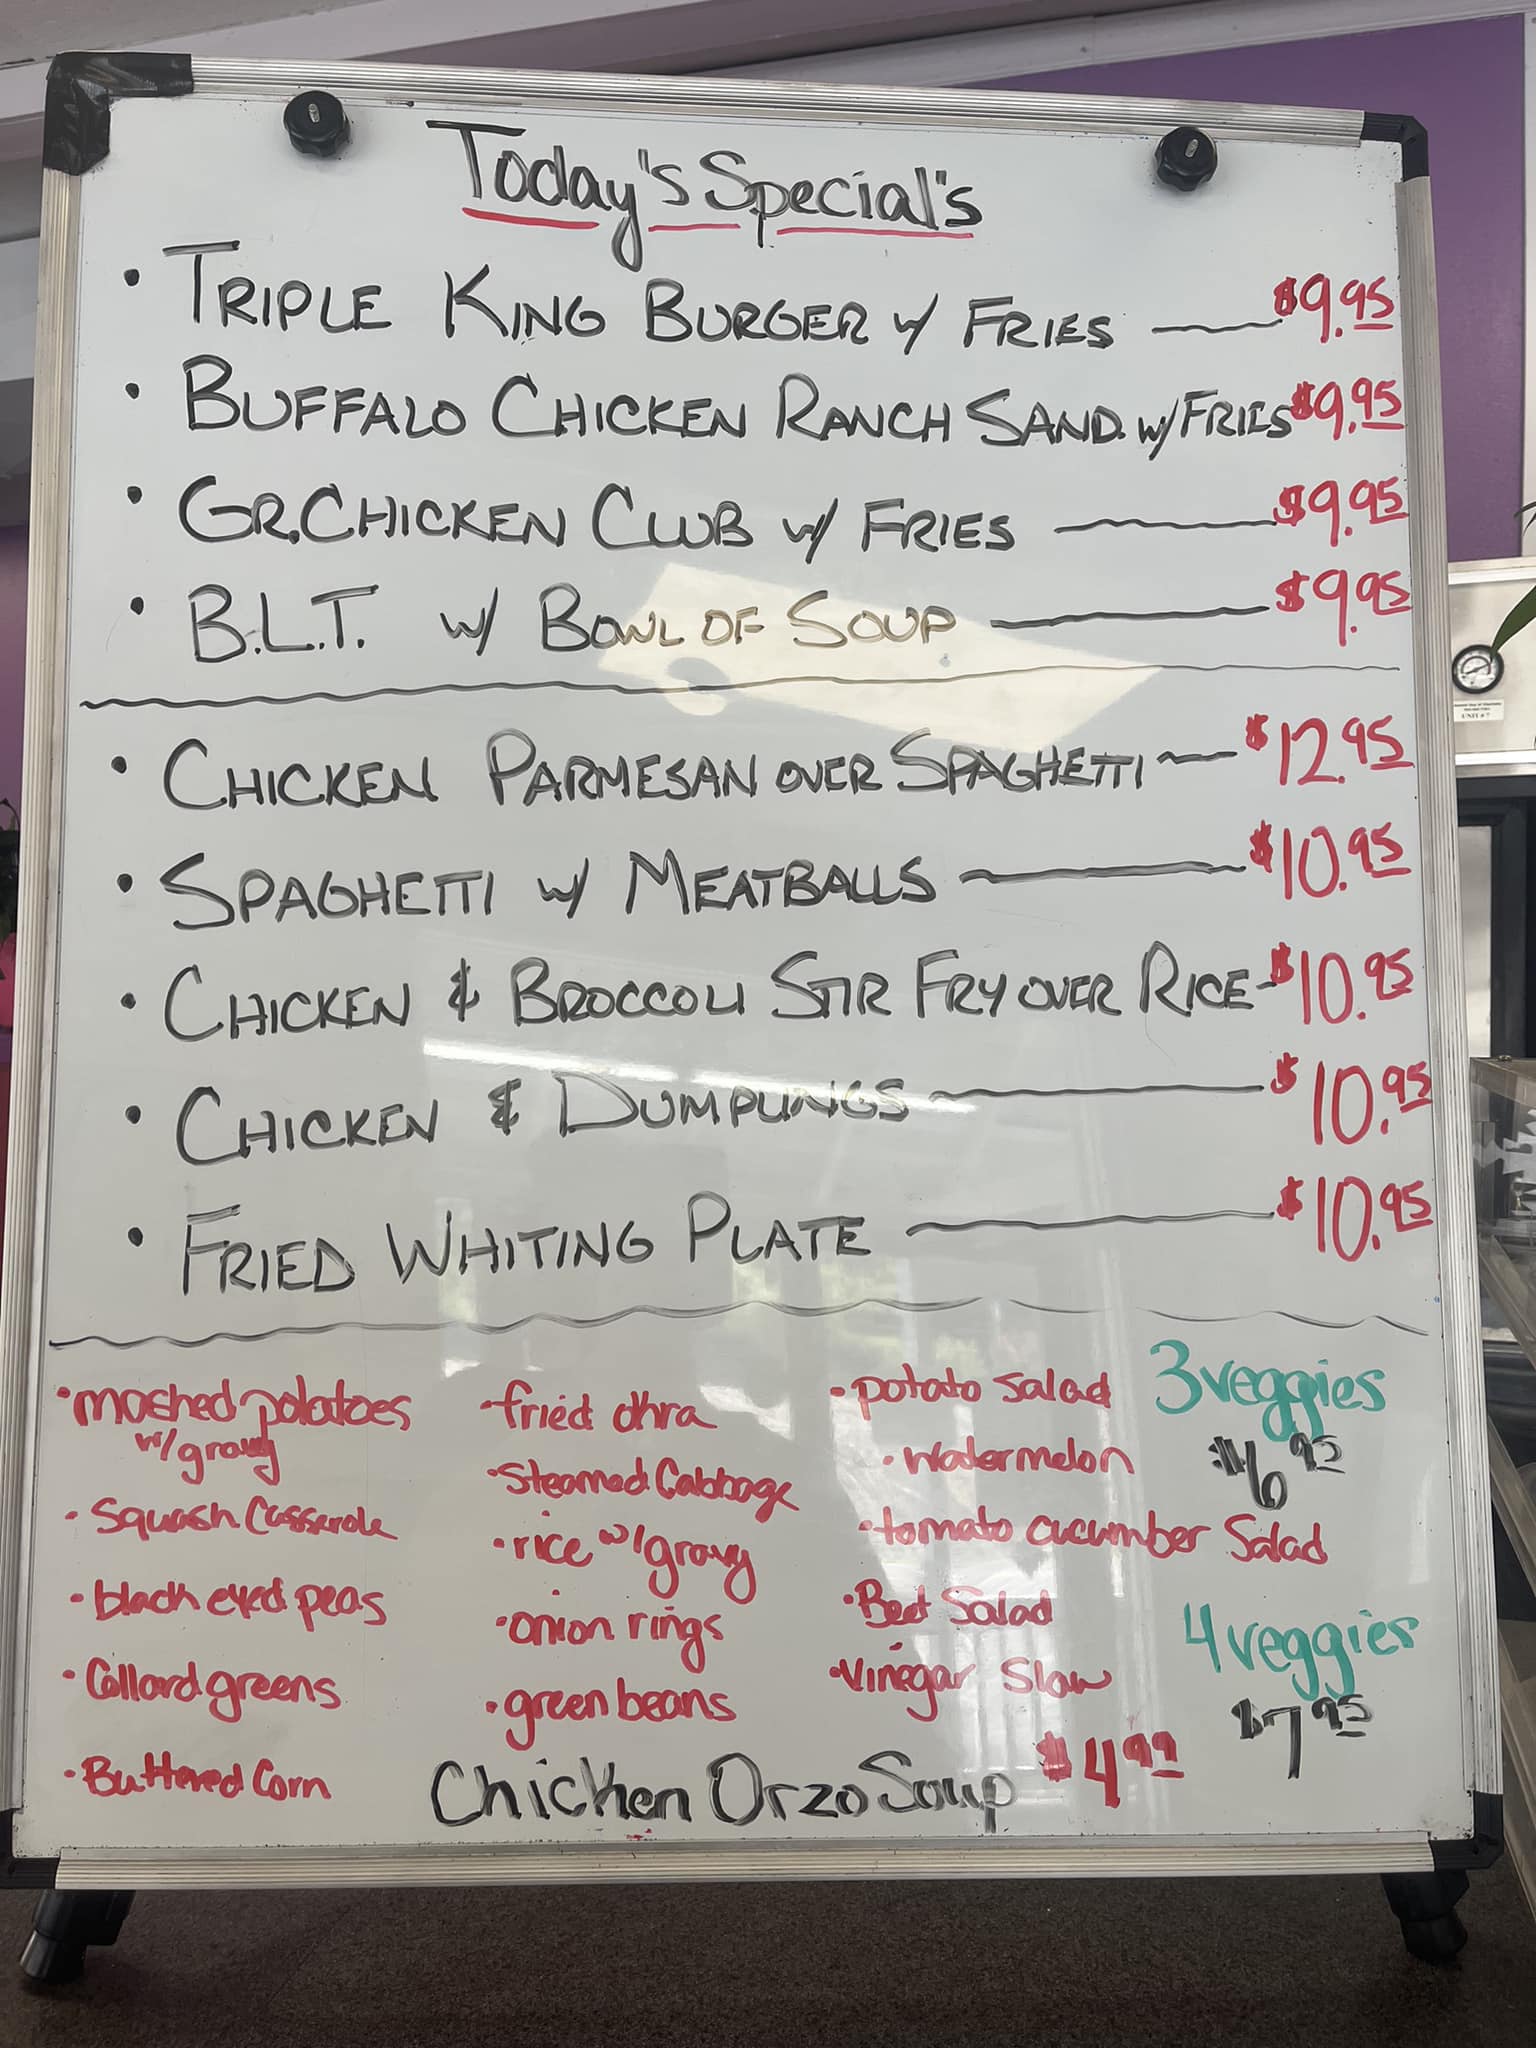 Today's Special's
• TRIPLE KING BURGER w/ FRIES — $9.95
• BUFFALO CHICKEN RANCH SAND. w/ FRIES $9.95
• GR. CHICKEN CLUB w/ FRIES — $9.95
• B.L.T. w/ BOWL OF SOUP — $9.95
• CHICKEN PARMESAN OVER SPAGHETTI — $12.95
• SPAGHETTI w/ MEATBALLS — $10.95
• CHICKEN & BROCCOLI STIR FRY OVER RICE - $10.95
• CHICKEN & DUMPLINGS — $10.95
• FRIED WHITING PLATE — $10.95
• mashed potatoes
w/ gravy
• Squash Casserole
• black eyed peas
• Collard greens
• Buttered Corn
• fried okra
• Steamed Cabbage
• rice w/ gravy
• onion rings
• green beans
• potato salad
• Watermelon
• tomato cucumber Salad
• Beet Salad
• Vinegar Slaw
3 veggies
$6.95
4 veggies
$7.95
Chicken Orzo Soup $4.99
UNIT # 7